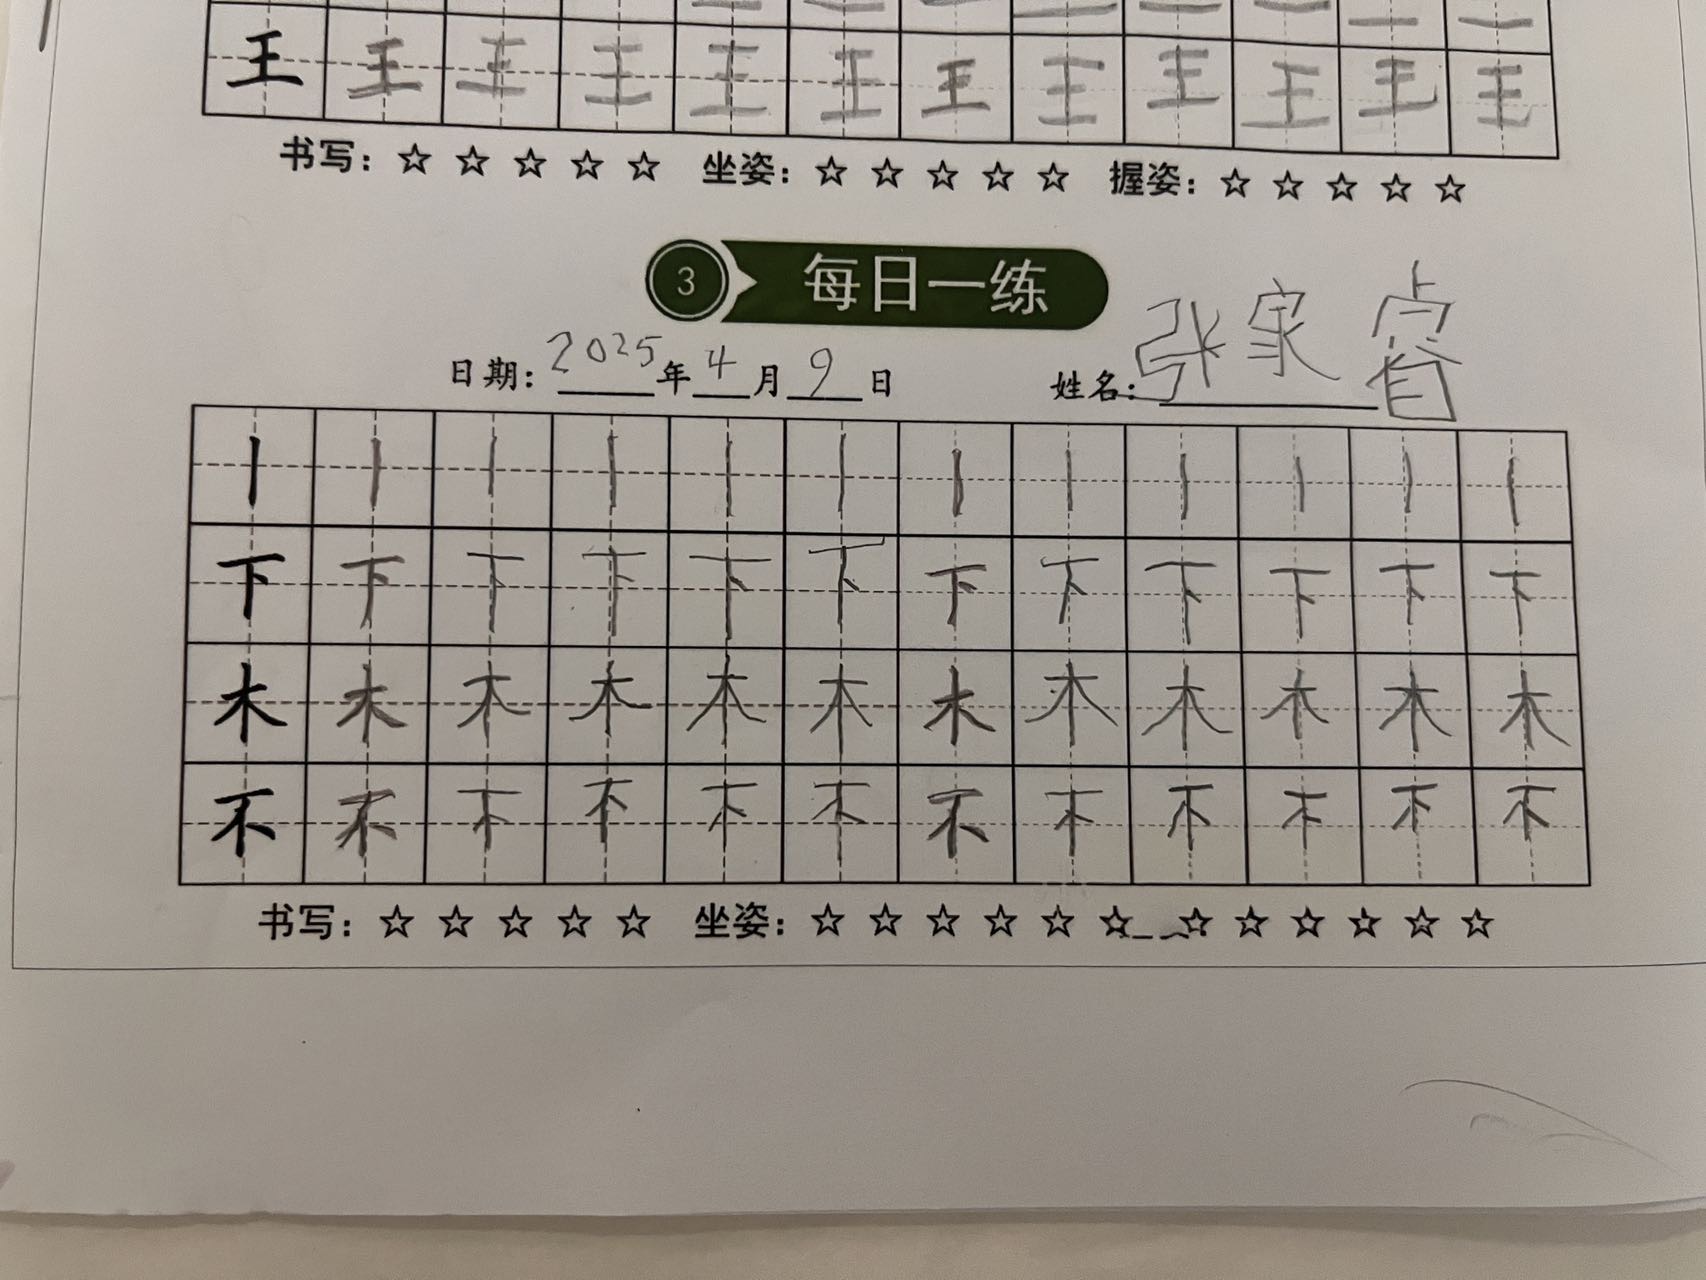 王 王 王 王 王 王 王 王 王 王 王 王
书写：☆ ☆ ☆ ☆ ☆ 坐姿：☆ ☆ ☆ ☆ ☆ 握姿：☆ ☆ ☆ ☆ ☆
3 每日一练
日期：2025年4月9日 姓名：张家睿
丨 丨 丨 丨 丨 丨 丨 丨 丨 丨 丨 丨
下 下 下 下 下 下 下 下 下 下 下 下
木 木 木 木 木 木 木 木 木 木 木 木
不 不 不 不 不 不 不 不 不 不 不 不
书写：☆ ☆ ☆ ☆ ☆ 坐姿：☆ ☆ ☆ ☆ ☆ ☆ ☆ ☆ ☆ ☆ ☆ ☆